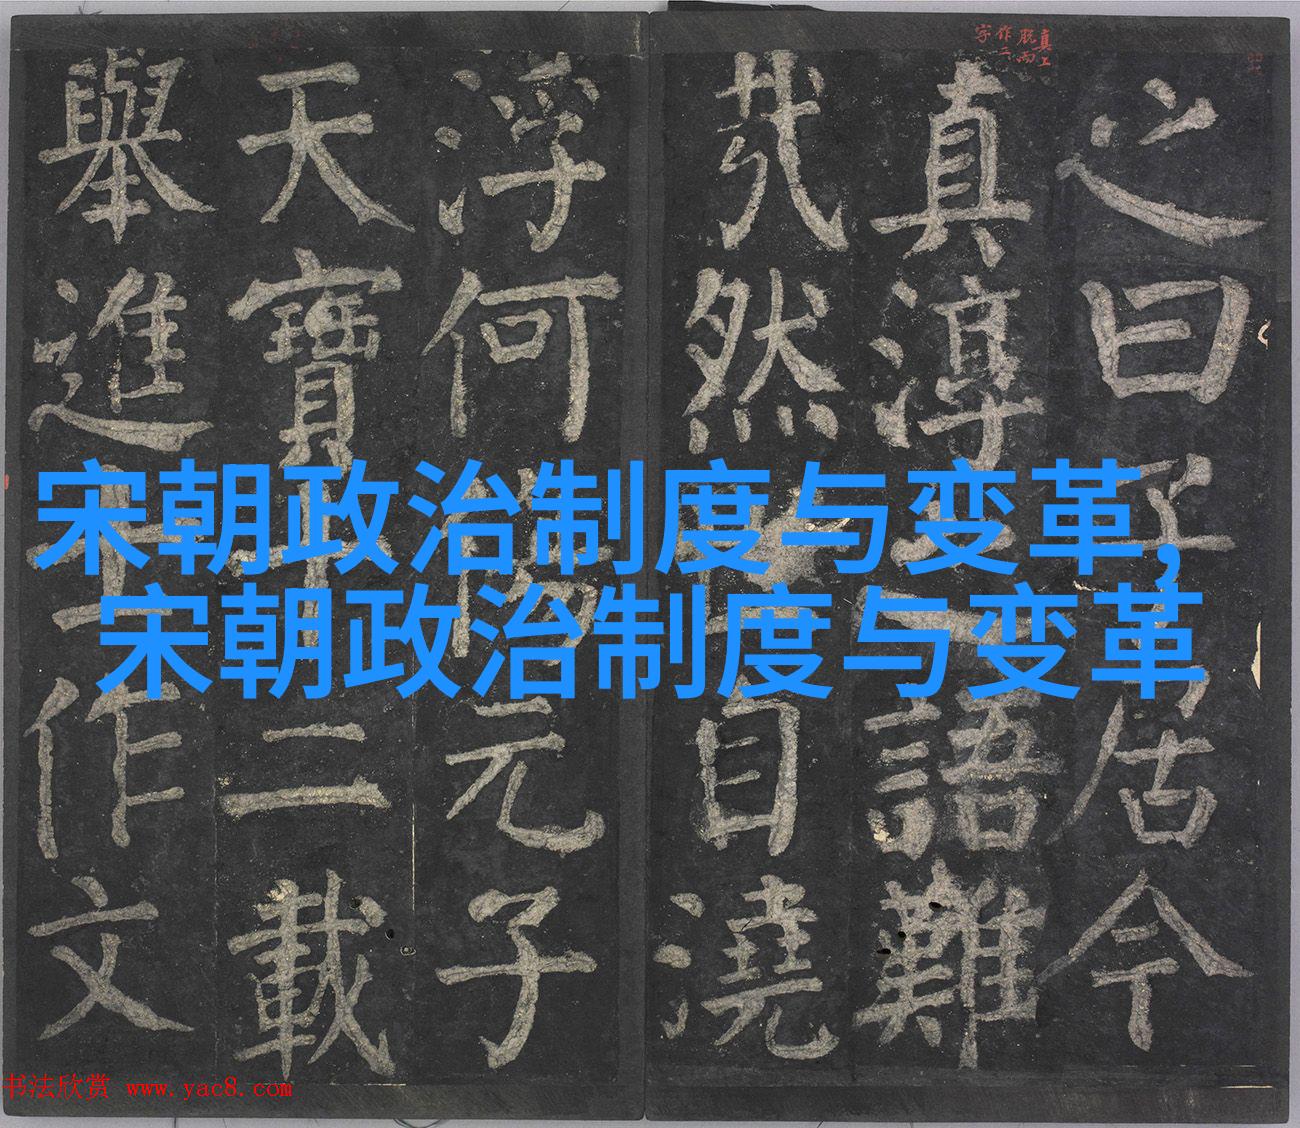 真上
脫而
作二
字
之曰子居今
真淳之語難
哉然世自澆
浮何傷元子
天寶十二載
舉進士作文
宋朝政治制度与变革,
宋朝政治制度与变革
书法欣赏 www.yac8.com